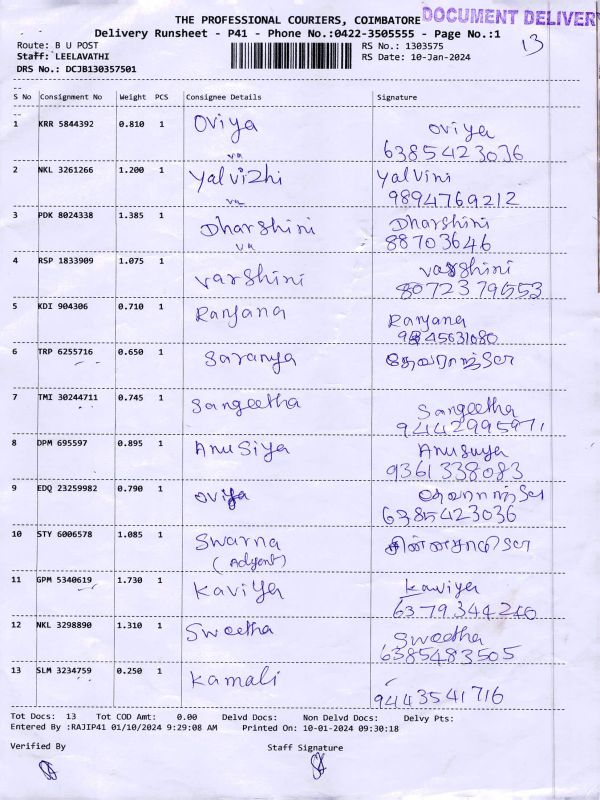 THE PROFESSIONAL COURIERS, COIMBATORE DOCUMENT DELIVER
Delivery Runsheet - P41 - Phone No.:0422-3505555 - Page No.:1
Route: B U POST RS No.: 1303575 13
Staff: LEELAVATHI RS Date: 10-Jan-2024
DRS No.: DCJB130357501
--
S No Consignment No Weight PCS Consignee Details Signature
--
1 KRR 5844392 0.810 1 Oviya Oviya
6385423036
2 NKL 3261266 1.200 1 Yalvizhi Yalvini
9894769212
3 PDK 8024338 1.385 1 Dharshini Dharshini
88703646
4 RSP 1833909 1.075 1 Varshini Varshini
8072379553
5 KDI 904306 0.710 1 Ranjana Ranjana
45631080
6 TRP 6255716 0.650 1 Saranya
7 TMI 30244711 0.745 1 Sangeetha Sangeetha
9442995971
8 DPM 695597 0.895 1 Anusiya Anusuya
9361338083
9 EDQ 23259982 0.790 1 Oviya
6385423036
10 STY 6006578 1.085 1 Swarna
11 GPM 5340619 1.730 1 Kaviya Kaviya
6379344240
12 NKL 3298890 1.310 1 Swetha Swetha
6385483505
13 SLM 3234759 0.250 1 Kamali
9443541716
Tot Docs: 13 Tot COD Amt: 0.00 Delvd Docs: Non Delvd Docs: Delvy Pts:
Entered By :RAJIP41 01/10/2024 9:29:08 AM Printed On: 10-01-2024 09:30:18
Verified By Staff Signature